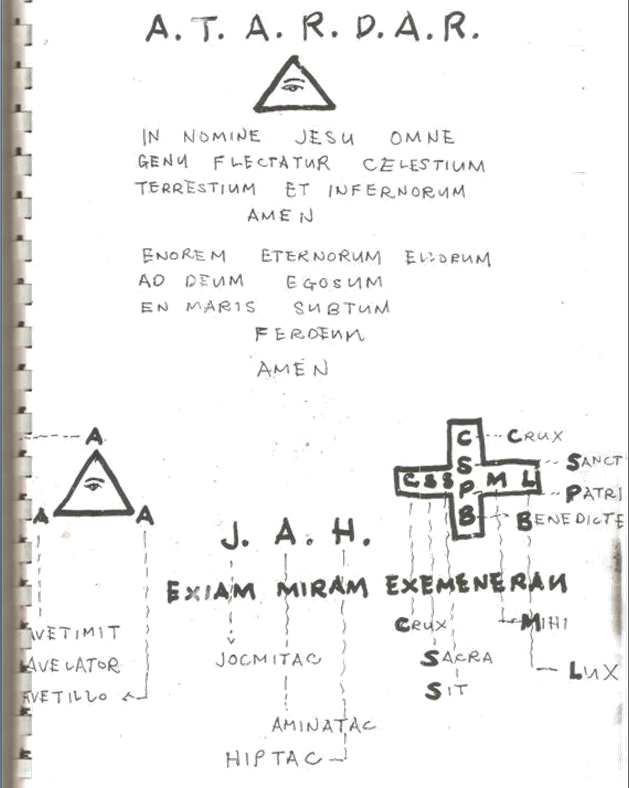 A.T.A.R.D.A.R.
IN NOMINE JESU OMNE
GENU FLECTATUR CELESTIUM
TERRESTIUM ET INFERNORUM
AMEN
ENOREM ETERNORUM
AD DEUM EGOSUM
EN MARIS SUBTUM
FERDEUM
AMEN
A
A A
AVETIMIT
AVELATOR
AVETILLO
J. A. H.
EXIAM MIRAM EXEMENERAN
JOCMITAC
AMINATAC
HIPTAC
C
S
C S S P M L
B
CRUX
SANCT
PATRI
BENEDICTE
CRUX
MIHI
SACRA
SIT
LUX